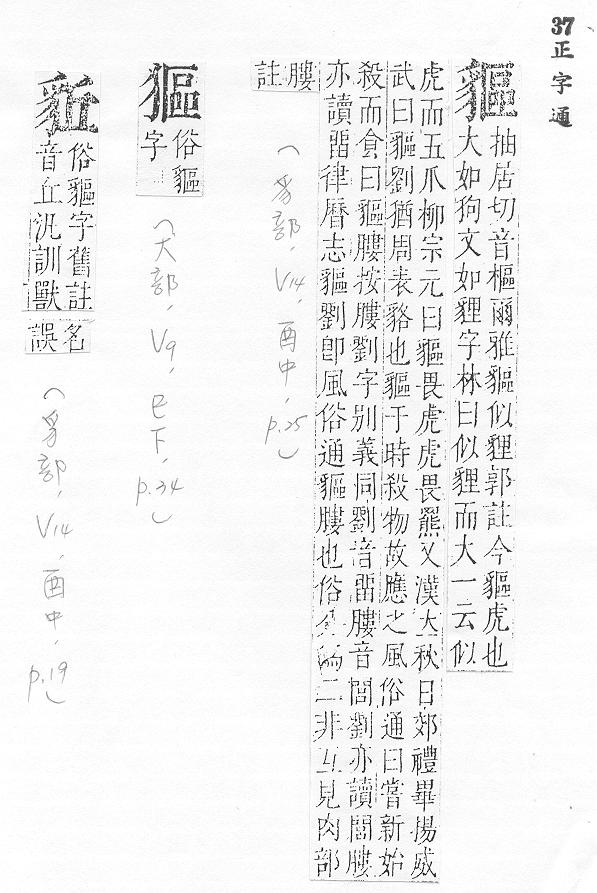 37正字通
貙
抽居切音樞爾雅貙似貍郭註今貙虎也
大如狗文如貍字林曰似貍而大一云似
虎而五爪柳宗元曰貙畏虎虎畏羆又漢立秋日郊禮畢揚威
武曰貙劉猶周表貉也貙于時殺物故應之風俗通曰嘗新始
殺而食曰貙膢按膢劉字別義同劉音畱膢音閭劉亦讀閭膢
亦讀畱律曆志貙劉卽風俗通貙膢也俗分爲二非互見肉部
膢
註
(豸部, V14, 酉中, p.25)
獌
俗貙
字
(犬部, V9, 巳下, p.34)
俗貙字舊註
音丘汎訓獸
名
誤
(豸部, V14, 酉中, p.19)